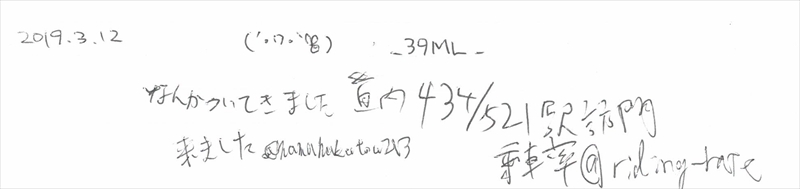 2019.3.12 -39ML-
なんかついてきました 道内434/521駅訪問
来ました
乗車率@riding-rate